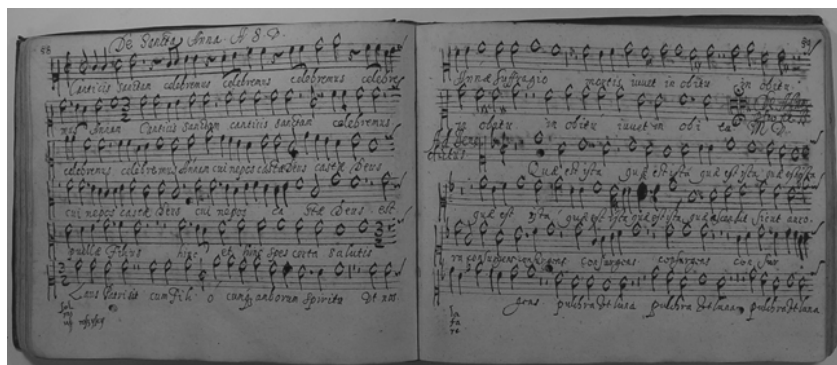 88
De Sancta Anna. A 8. P.
Canticis Sanctam celebremus celebremus celebremus celebre
mus Annam Canticis sanctam canticis sanctam celebremus
celebremus celebremus Annam cui nepos castæ Deus castæ Deus
cui nepos castæ Deus cui nepos ca stæ Deus. est
puellæ Filius hinc et hinc spes certa salutis
Laus Patri sit cum Fili o amborum Spiritu Ut nos
89
Annæ suffragio mortis iuvet in obitu in obitu
in obitu in obitu iuvet in obi tu
Quæ est ista quæ est ista quæ est ista quæ est ista
quæ est ista quæ est ista quæ est ista quæ ascendit sicut auro
ra consurgens consurgens consurgens consurgens con sur
gens pulchra Ut luna pulchra Ut luna pulchra Ut luna